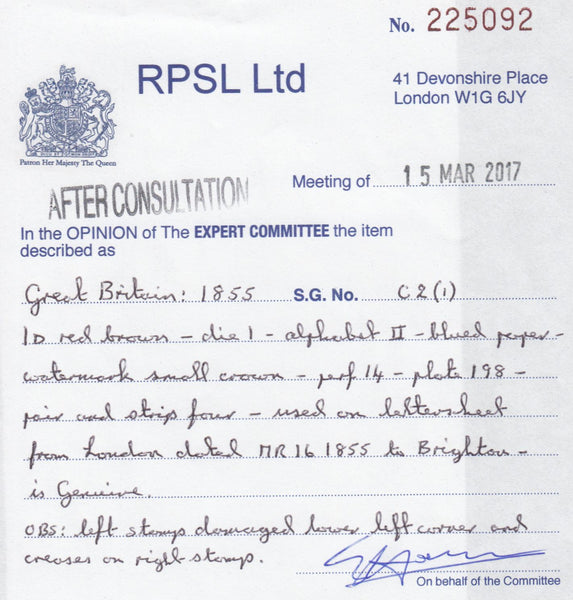 No. 225092
RPSL Ltd
41 Devonshire Place
London W1G 6JY
Patron Her Majesty The Queen
AFTER CONSULTATION
Meeting of 15 MAR 2017
In the OPINION of The EXPERT COMMITTEE the item
described as
Great Britain: 1855 S.G. No. C2(1)
1D red brown - die 1 - alphabet II - blued paper -
watermark small crown - perf 14 - plate 198 -
pair and strip four - used on lettersheet
from London dated MR 16 1855 to Brighton -
is Genuine.
OBS: left stamps damaged lower left corner and
creases on right stamps.
On behalf of the Committee